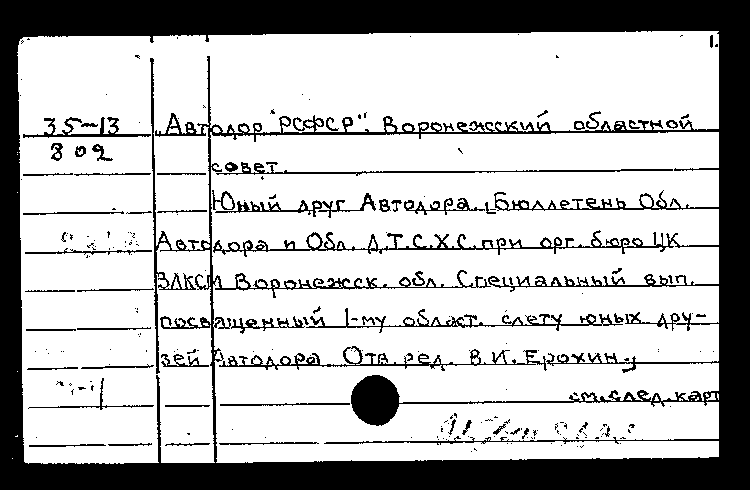 1.
35-13 „Автодор "РСФСР". Воронежский областной
802
совет.
Юный друг Автодора. [Бюллетень Обл.
Автодора и Обл. Д.Т.С.Х.С. при орг. бюро ЦК
ВЛКСМ Воронежск. обл. Специальный вып.
посващенный 1-му област. слету юных дру-
зей Автодора Отв. ред. В.И. Ерохин.
см. след. карт